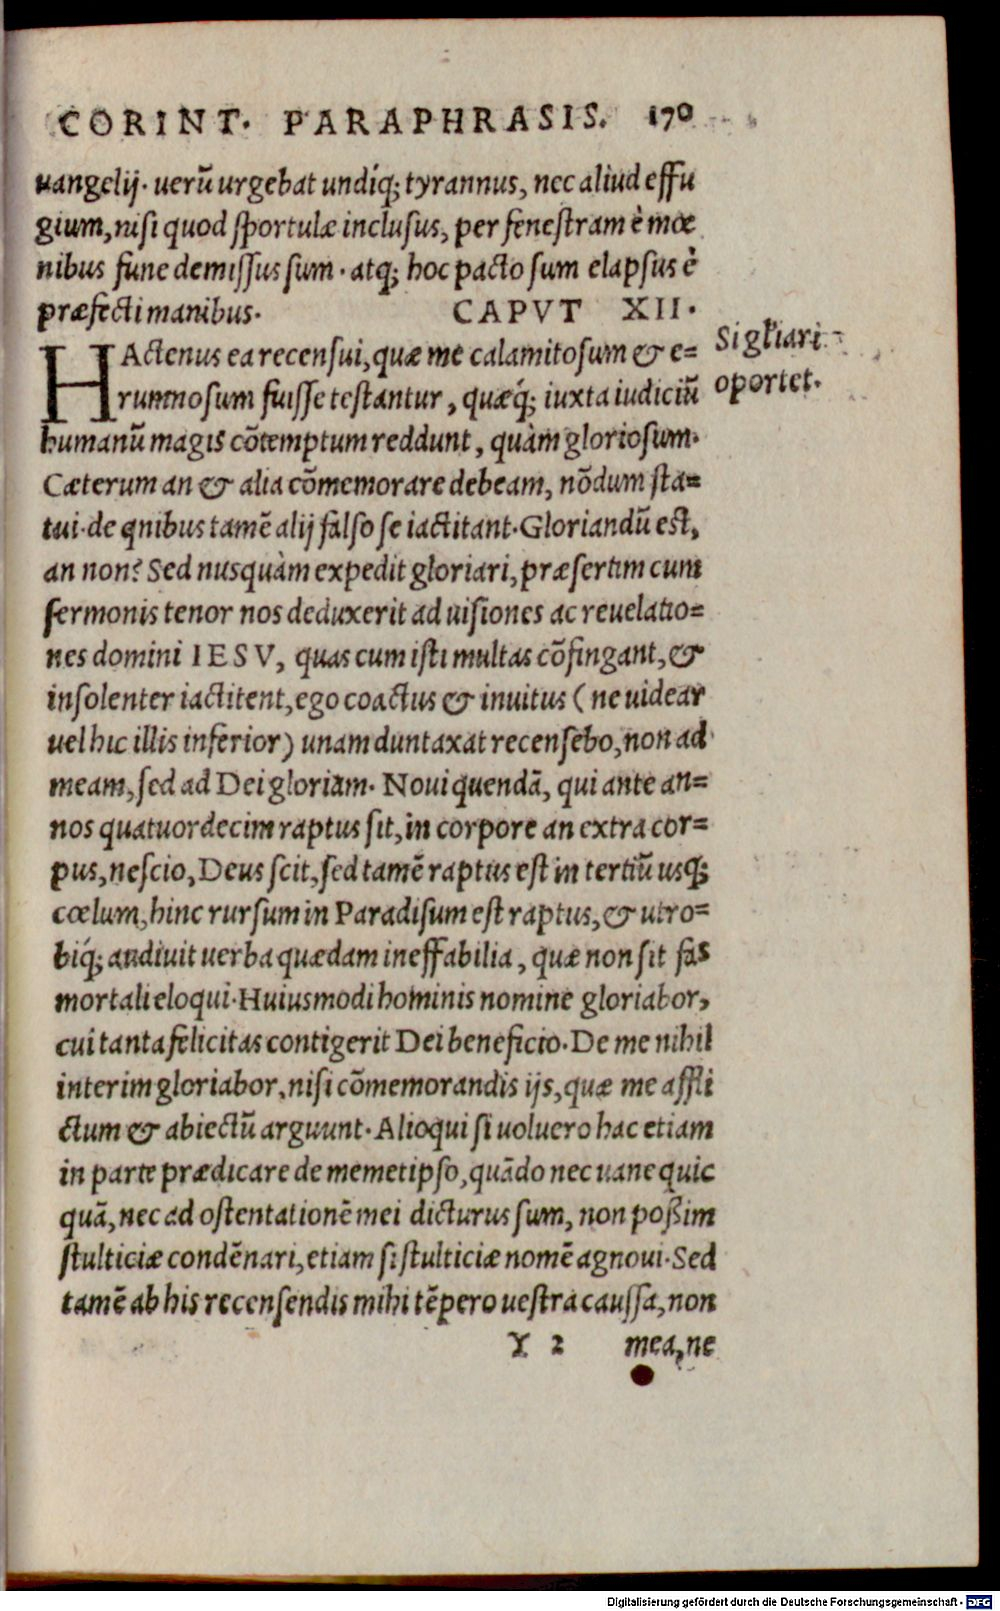 CORINT. PARAPHRASIS. 170
uangelij. uerũ urgebat undíq; tyrannus, nec aliud effu
gium, nisi quod sportulæ inclusus, per fenestram è mœ
nibus fune demissus sum. atq; hoc pacto sum elapsus è
præfecti manibus. CAPVT XII.
HActenus ea recensui, quæ me calamitosum & e=
rumnosum fuisse testantur, quæq́; iuxta iudiciũ
humanũ magis cõtemptum reddunt, quàm gloriosum.
Cæterum an & alia cõmemorare debeam, nõdum sta=
tui. de qnibus tamẽ alij falso se iactitant. Gloriandũ est,
an non? Sed nusquàm expedit gloriari, præsertim cum
sermonis tenor nos deduxerit ad uisiones ac reuelatio=
nes domini IESV, quas cum isti multas cõfingant, &
insolenter iactitent, ego coactus & inuitus (ne uidear
uel hic illis inferior) unam duntaxat recensebo, non ad
meam, sed ad Dei gloriam. Noui quendã, qui ante an=
nos quatuordecim raptus sit, in corpore an extra cor=
pus, nescio, Deus scit, sed tamẽ raptus est in tertiũ usq;
cœlum, hinc rursum in Paradisum est raptus, & utro=
biq́; audiuit uerba quædam ineffabilia, quæ non sit fas
mortali eloqui. Huiusmodi hominis nomine gloriabor,
cui tanta felicitas contigerit Dei beneficio. De me nihil
interim gloriabor, nisi cõmemorandis ijs, quæ me affli
ctum & abiectũ arguunt. Alioqui si uoluero hac etiam
in parte prædicare de memetipso, quãdo nec uane quic
quã, nec ad ostentationẽ mei dicturus sum, non poßim
stulticiæ condẽnari, etiam si stulticiæ nomẽ agnoui. Sed
tamẽ ab his recensendis mihi tẽpero uestra caussa, non
Y 2 mea, ne
Si gl̃iari
oportet.
Digitalisierung gefördert durch die Deutsche Forschungsgemeinschaft - DFG